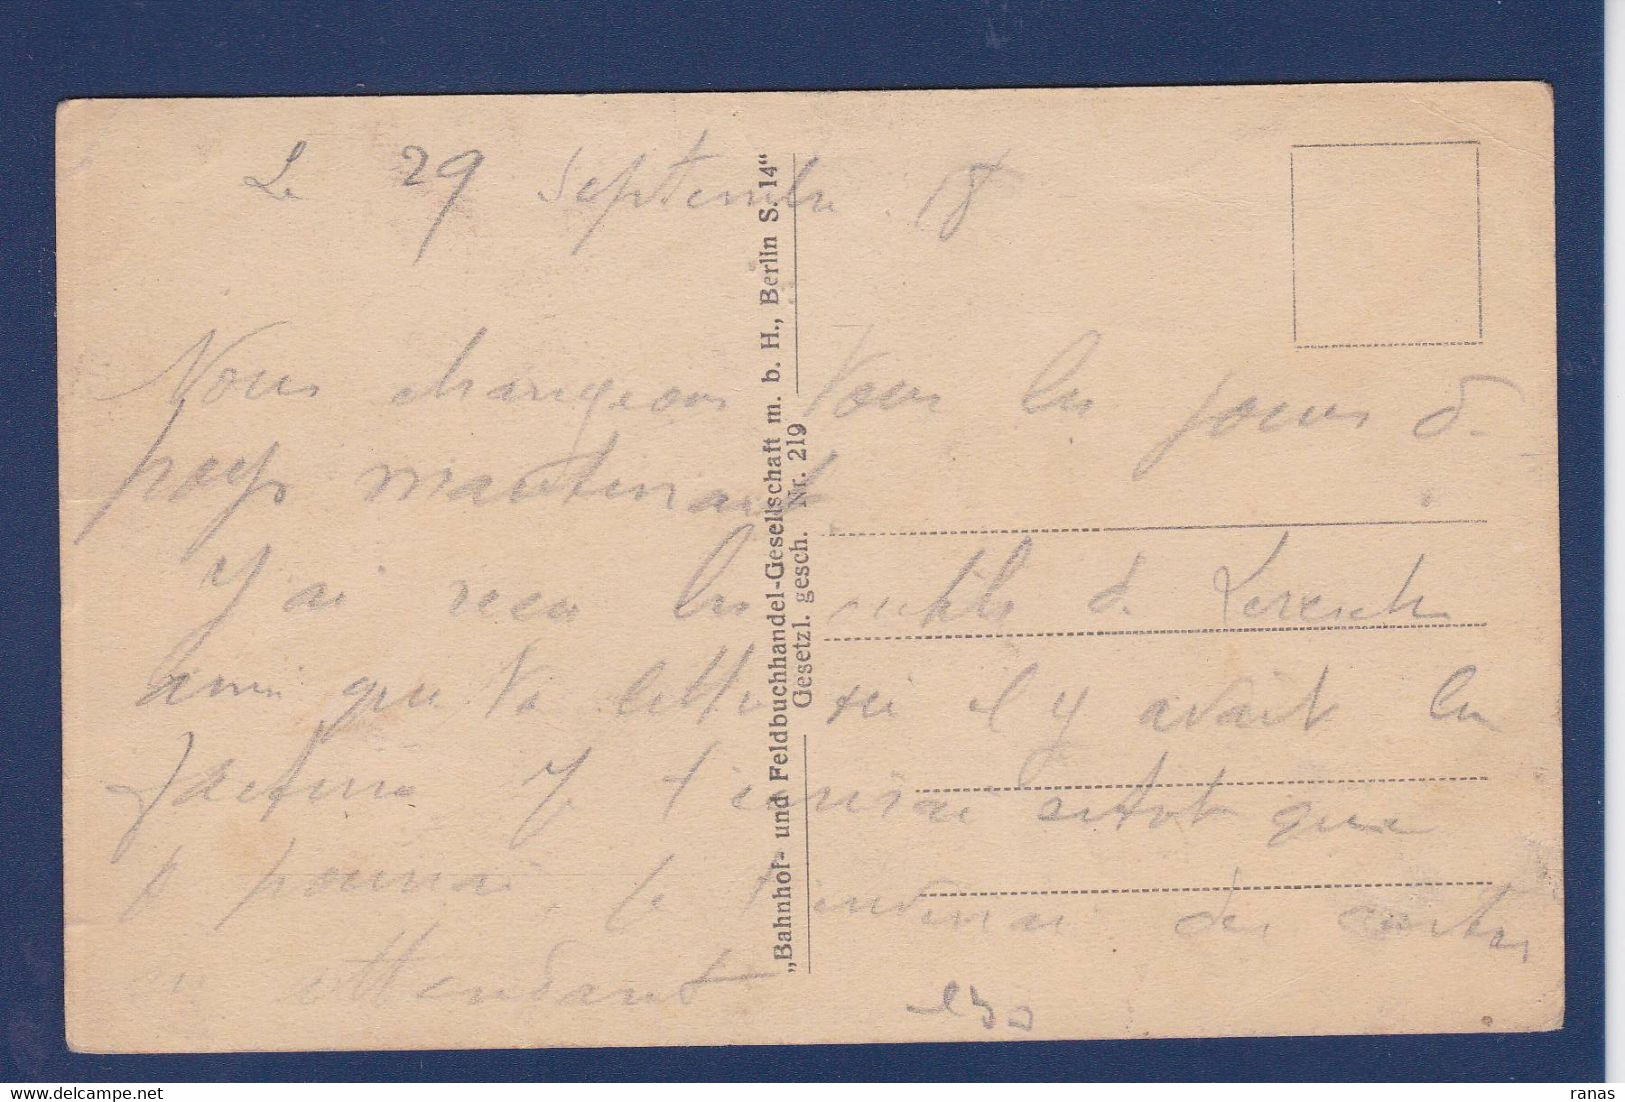 Le 29 Septembre 18
Nous changeons tous les jours de
pays maintenant
J'ai recu les de
ainsi que ta lettre ou il y avait la
Je t'ecrirai sitot que
je pourrai je t'enverrai des cartes
en attendant
„Bahnhof- und Feldbuchhandel-Gesellschaft m. b. H., Berlin S. 14“
Gesetzl. gesch. Nr. 219
ranas